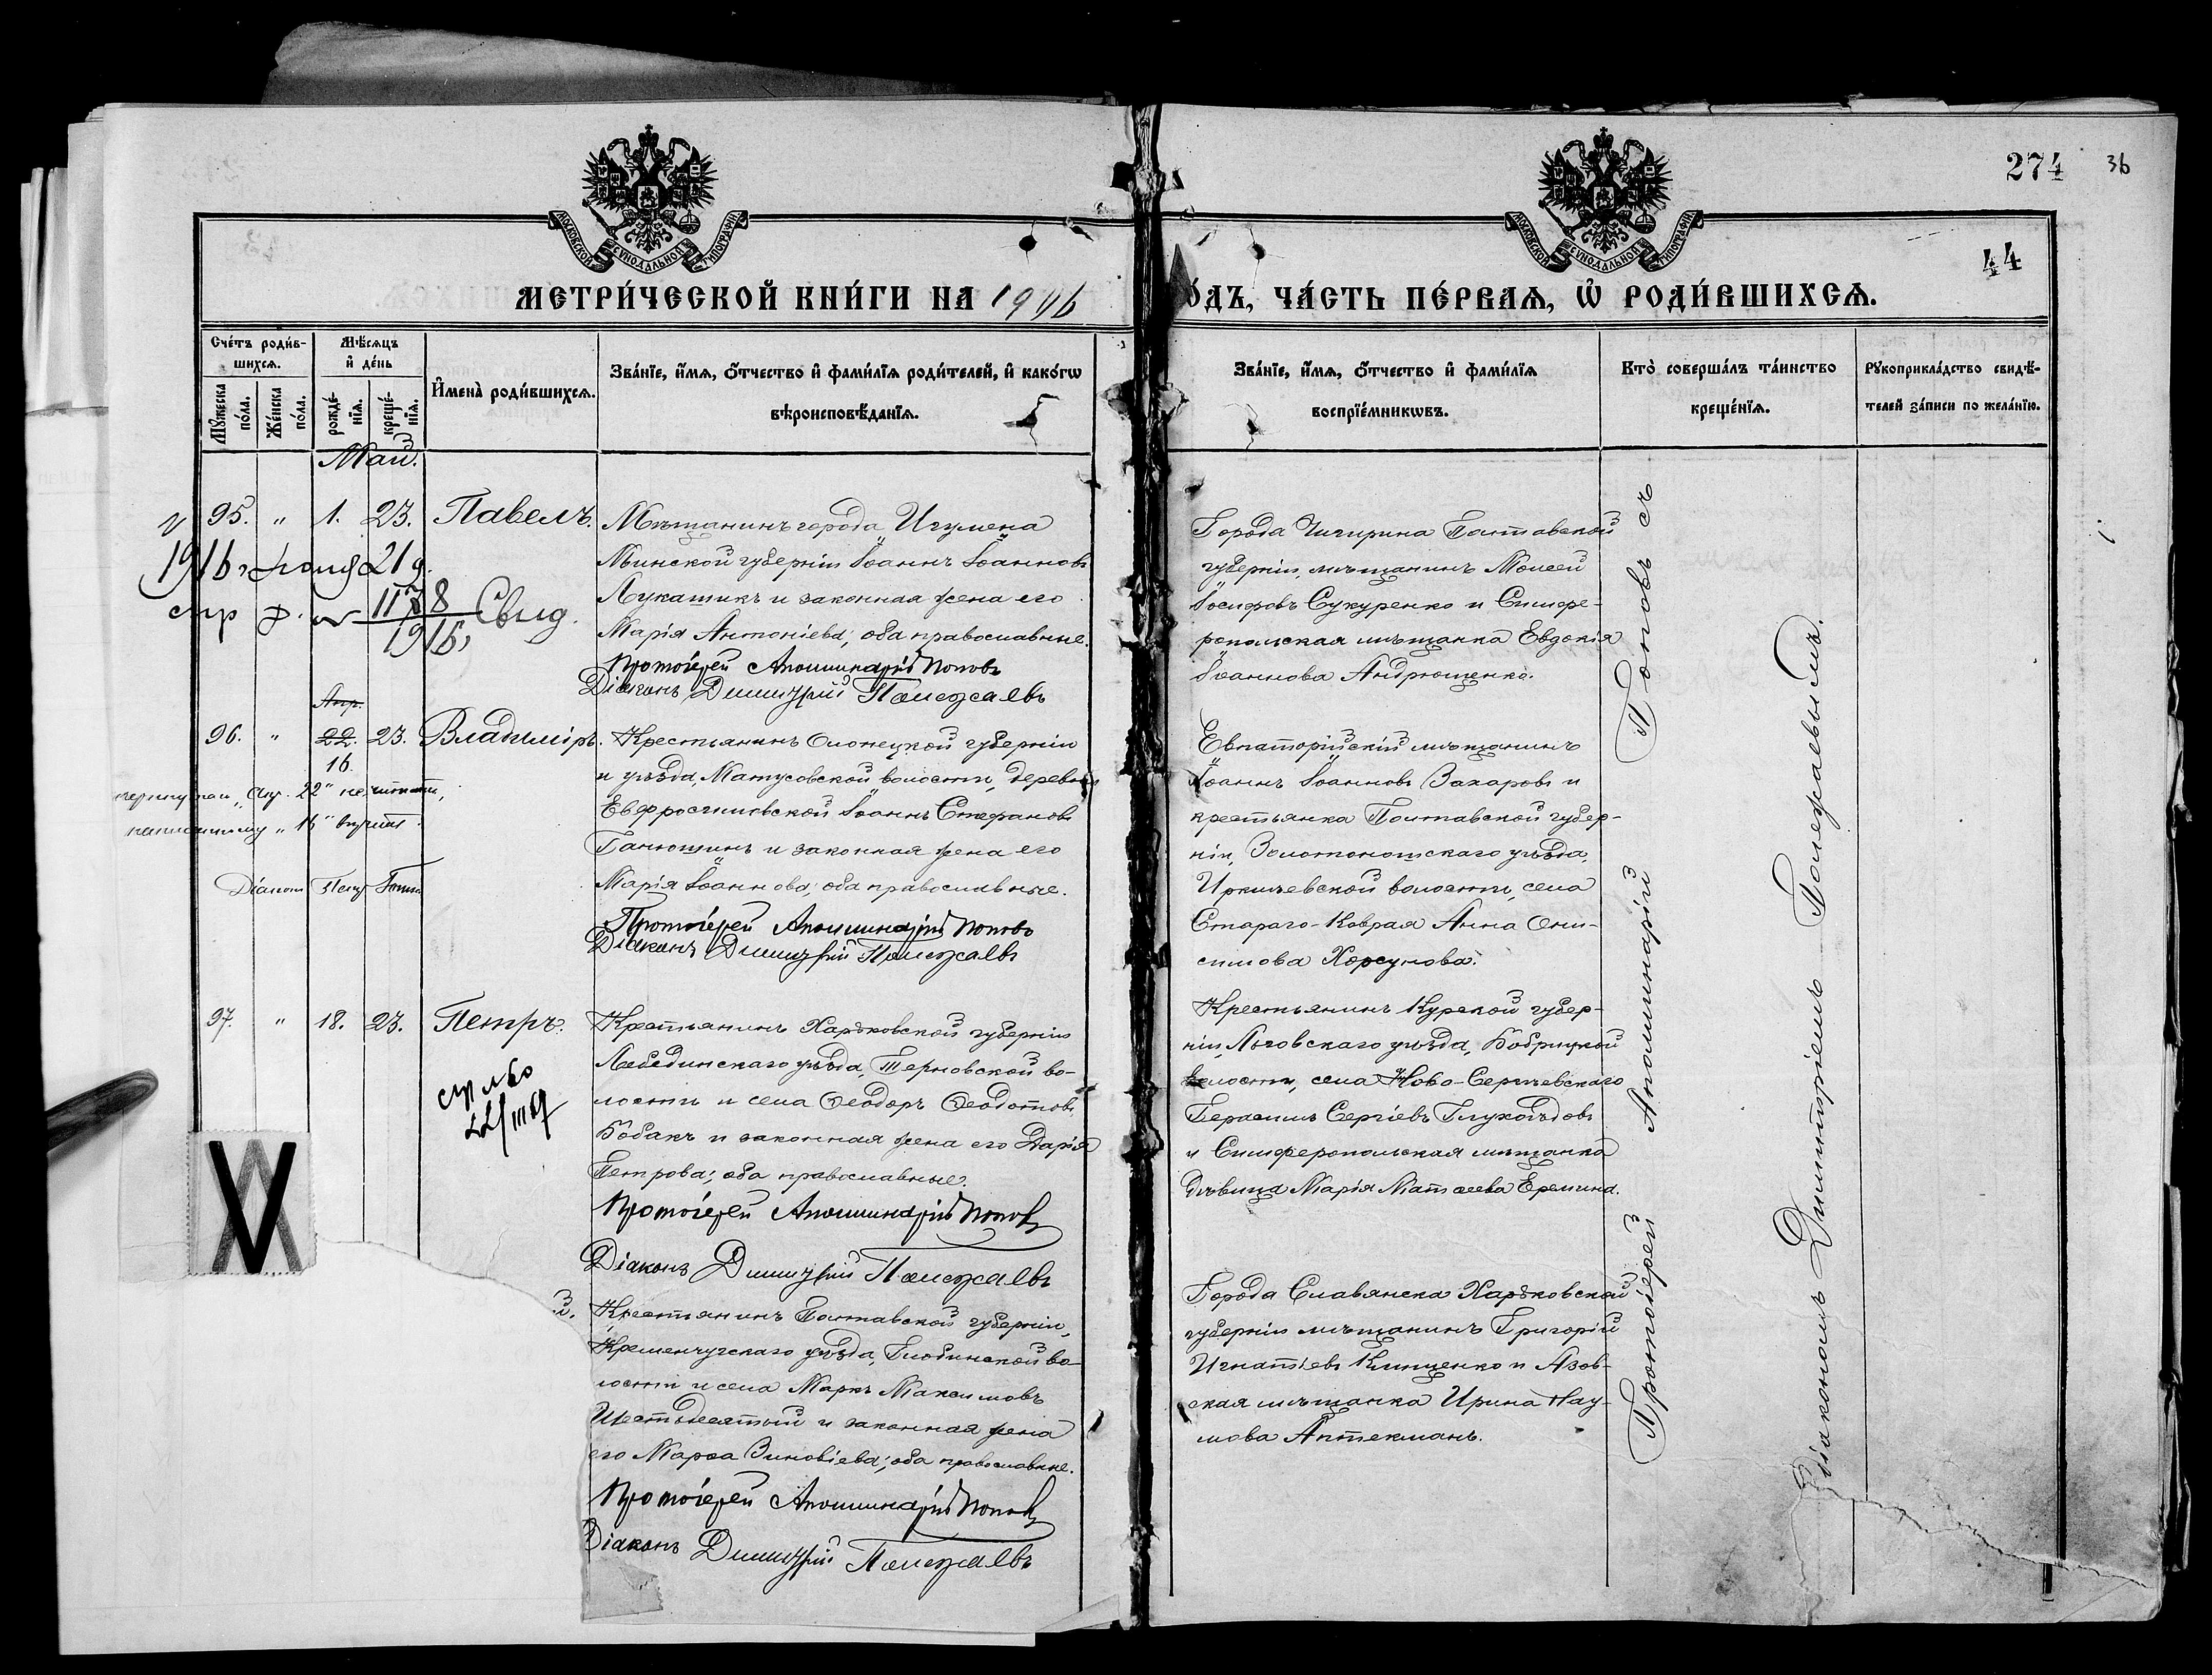 274 36
44
МОСКОВСКОЙ СѴНОДАЛЬНОЙ ТИПОГРАФІИ
МОСКОВСКОЙ СѴНОДАЛЬНОЙ ТИПОГРАФІИ
МЕТРИ́ЧЕСКОЙ КНИ́ГИ НА 1906
О́ДЪ, ЧА́СТЬ ПЕ́РВАѦ, Ѡ҆ РОДИ́ВШИХСѦ.
Сче́тъ роди́в-
шихсѧ.
Мꙋ́жеска по́ла.
Же́нска по́ла.
Мѣ́сѧцъ
и҆ де́нь
рожде́-
нїѧ.
креще́-
нїѧ.
И҆мена̀ роди́вшихсѧ.
Зва́нїе, и҆́мѧ, ѻ҆́тчество и҆ фами́лїѧ роди́телей, и҆ како́гѡ
вѣроисповѣ́данїѧ.
Зва́нїе, и҆́мѧ, ѻ҆́тчество и҆ фами́лїѧ
воспрїе́мникѡвъ.
Кто̀ соверша́лъ та́инство
креще́нїѧ.
Рꙋкоприкла́дство свидѣ́-
телей за́писи по жела́нїю.
Май.
95. „ 1. 23. Павелъ.
Мѣщанинъ города Игумена
Минской губерніи Іоаннъ Іоанновъ
Лукашикъ и законная жена его
Марія Антоніева; оба православные.
Протоіерей Аполлинарій Поповъ
Діаконъ Димитрій Полежаевъ
1916 г. 21 д.
1178
1916
Свид.
Города Чигирина Полтавской
губерніи, мѣщанинъ Моисей
Іосифовъ Сукуренко и Симфе-
ропольская мѣщанка Евдокія
Іоаннова Андрющенко.
Апр.
96. „ 22. 23. Владиміръ.
16.
Крестьянинъ Олонецкой губерніи
и уѣзда, Матусовской волости, деревни
Евфросимовской Іоаннъ Стефановъ
Ганюшинъ и законная жена его
Марія Іоаннова; оба православные.
Протоіерей Аполлинарій Поповъ
Діаконъ Димитрій Полежаевъ
„Апр. 22" не читать,
„16" вѣрить.
Діаконъ
Евпаторійскій мѣщанинъ
Іоаннъ Іоанновъ Захаровъ и
крестьянка Полтавской губер-
ніи, Золотоношскаго уѣзда,
Ирклѣевской волости, села
Стараго-Коврая Анна Они-
симова Хорсунова.
97. „ 18. 23. Петръ.
Крестьянинъ Харьковской губерніи
Лебединскаго уѣзда, Терновской во-
лости и села Ѳеодоръ Ѳеодотовъ
Бобакъ и законная жена его Дарія
Петрова; оба православные.
Протоіерей Аполлинарій Поповъ
Діаконъ Димитрій Полежаевъ
Крестьянинъ Курской губер-
ніи, Льговскаго уѣзда, Бобрицкой
волости, села Ново-Сергѣевскаго
Герасимъ Сергіевъ Глухоѣдовъ
и Симферопольская мѣщанка
дѣвица Марія Матѳеева Еремина.
й.
Крестьянинъ Полтавской губерніи,
Кременчугскаго уѣзда, Глобинской во-
лости и села Маркъ Максимовъ
Шестьдесятый и законная жена
его Марѳа Зиновіева; оба православные.
Протоіерей Аполлинарій Поповъ
Діаконъ Димитрій Полежаевъ
Города Славянска Харьковской
губерніи мѣщанинъ Григорій
Игнатіевъ Клищенко и Азов-
ская мѣщанка Ирина Нау-
мова Аптекманъ.
Протоіерей Аполлинарій Поповъ съ
Діакономъ Димитріемъ Полежаевымъ.